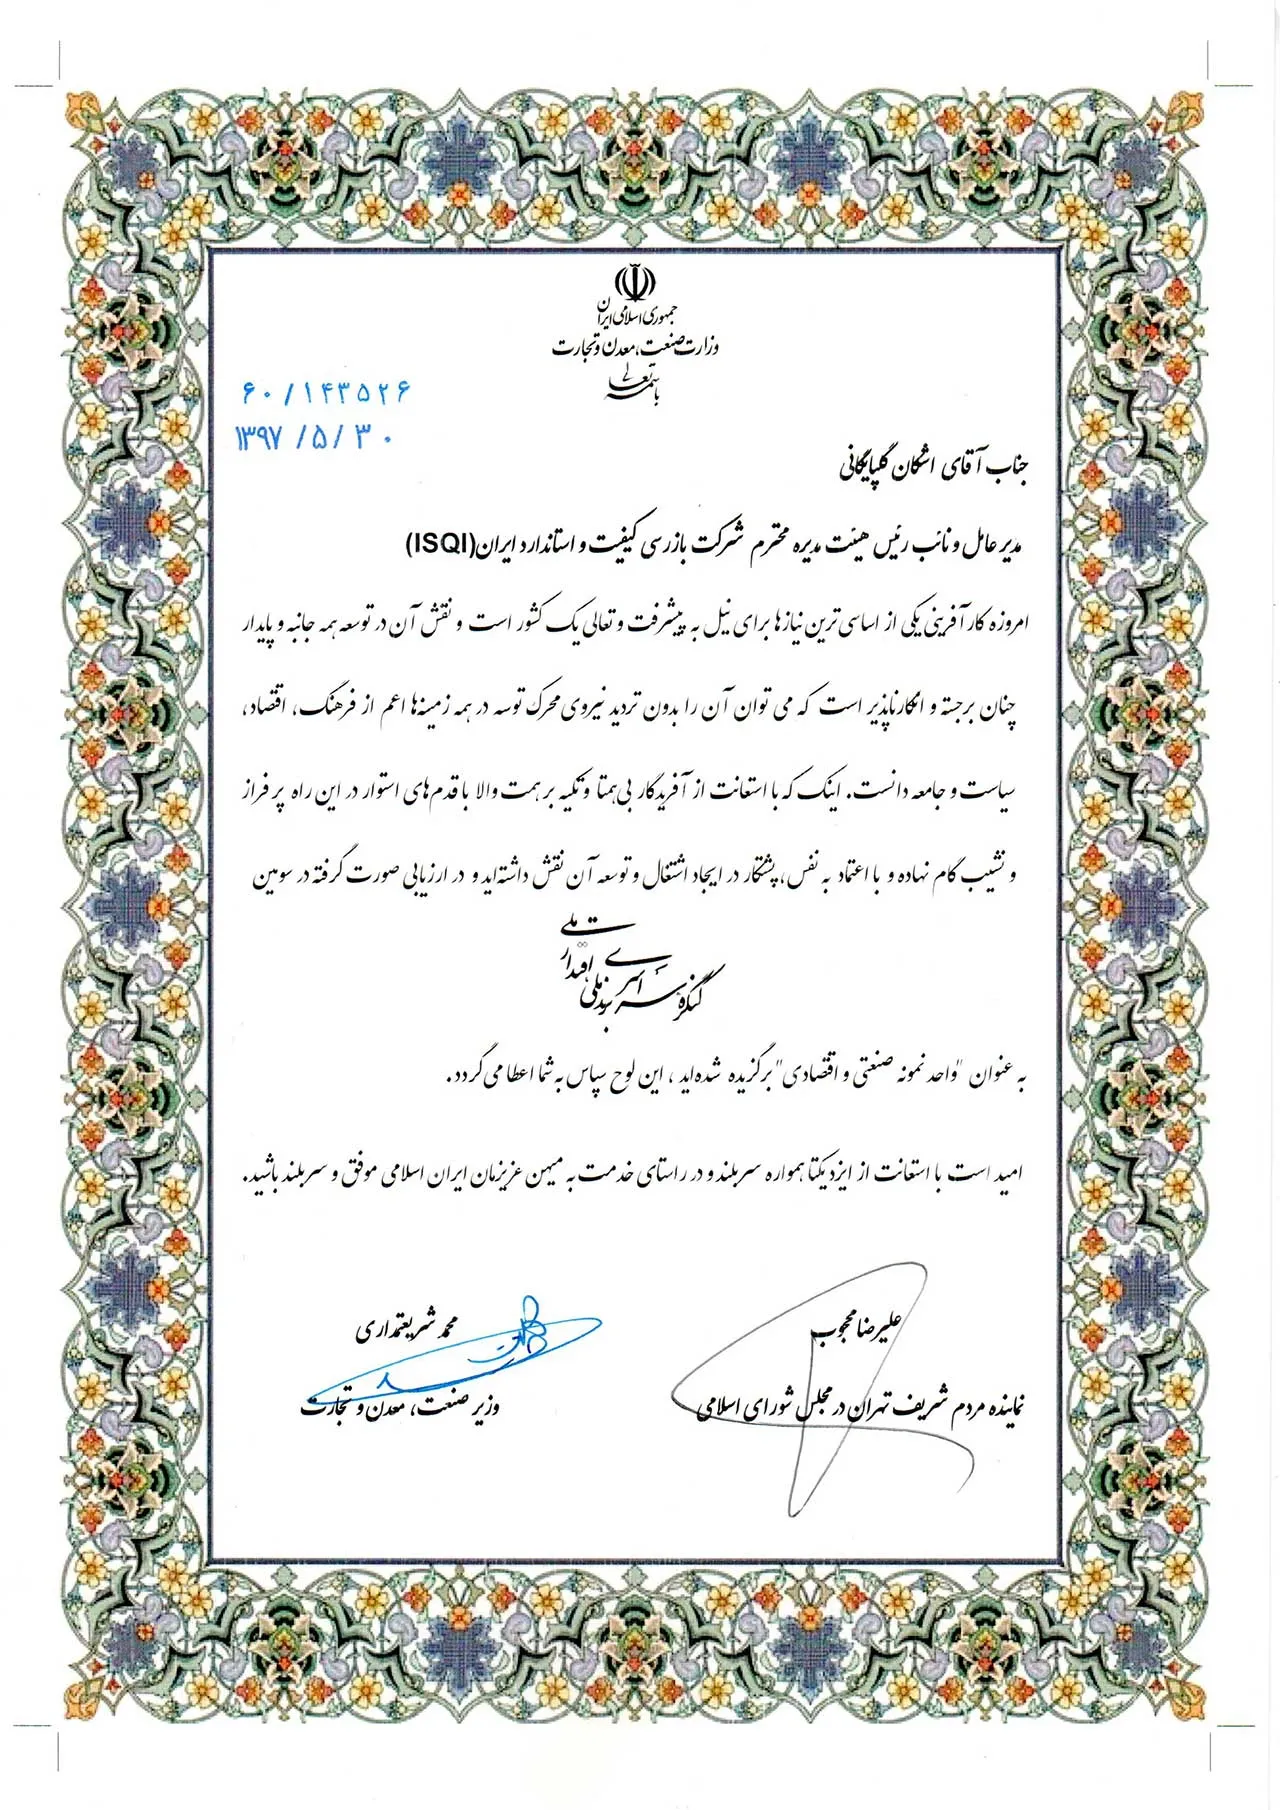 جمهوری اسلامی ایران
وزارت صنعت، معدن و تجارت
باسمه تعالی
۶۰/۱۴۳۵۲۶
۱۳۹۷/۵/۳۰
جناب آقای اشکان گلپایگانی
مدیر عامل و نائب رئیس هیئت مدیره محترم شرکت بازرسی کیفیت و استاندارد ایران(ISQI)
امروزه کارآفرینی یکی از اساسی ترین نیازها برای نیل به پیشرفت و تعالی یک کشور است و نقش آن در توسعه همه جانبه و پایدار
چنان برجسته و انکارناپذیر است که می توان آن را بدون تردید نیروی محرک توسه در همه زمینه‌ها اعم از فرهنگ، اقتصاد،
سیاست و جامعه دانست. اینک که با استعانت از آفریدگار بی‌همتا و تکیه بر همت والا با قدم‌های استوار در این راه پر فراز
و نشیب گام نهاده و با اعتماد به نفس، پشتکار در ایجاد اشتغال و توسعه آن نقش داشته‌اید و در ارزیابی صورت گرفته در سومین
کنگره سراسری
ملی اقتدار ملی
به عنوان "واحد نمونه صنعتی و اقتصادی" برگزیده شده‌اید ، این لوح سپاس به شما اعطا می گردد.
امید است با استعانت از ایزد یکتا همواره سربلند و در راستای خدمت به میهن عزیزمان ایران اسلامی موفق و سربلند باشید.
علیرضا محجوب
نماینده مردم شریف تهران در مجلس شورای اسلامی
محمد شریعتمداری
وزیر صنعت، معدن و تجارت